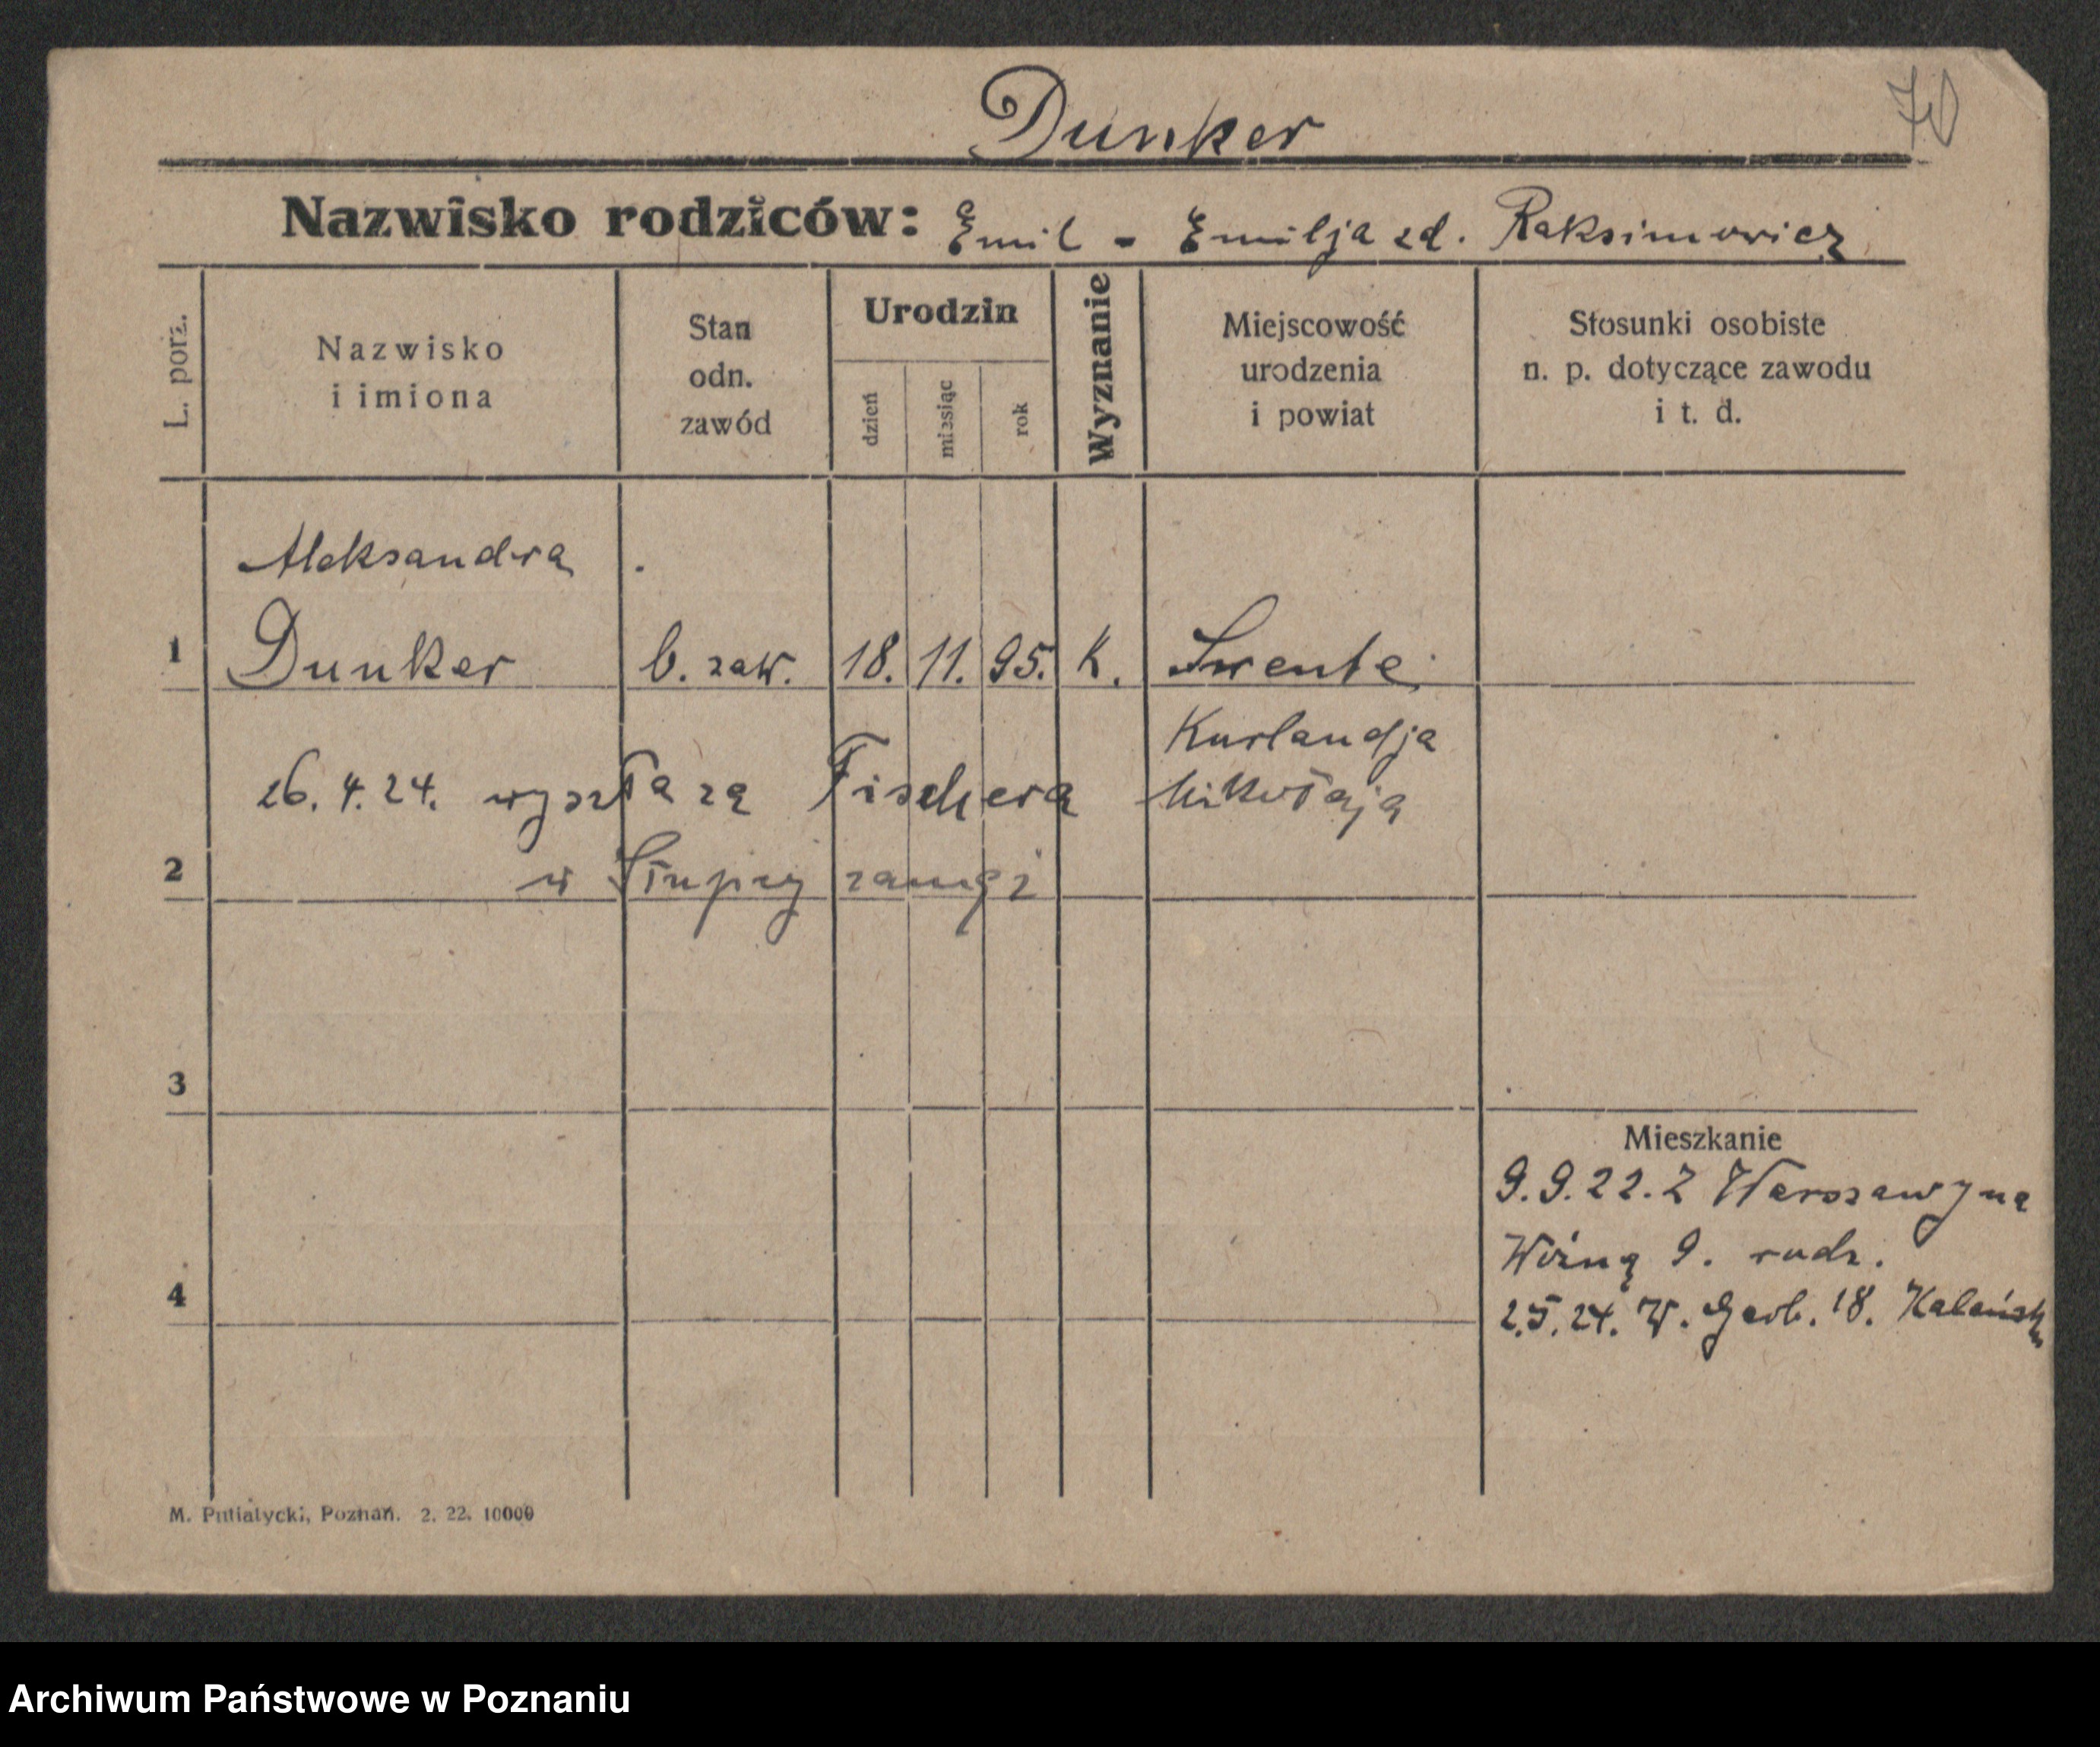 Dunker
70
Nazwisko rodziców: Emil - Emilja zd. Raksimowicz
L. porz.
Nazwisko
i imiona
Stan
odn.
zawód
Urodzin
dzień
miesiąc
rok
Wyznanie
Miejscowość
urodzenia
i powiat
Stosunki osobiste
n. p. dotyczące zawodu
i t. d.
Aleksandra
1 Dunker b. zaw. 18. 11. 95. K. Swente
Kurlandja
26. 4. 24. wyszła za Fischera Mikołaja
2 w Słupcy
3
Mieszkanie
9. 9. 22. Z Warszawy na
Woźną 9. rodz.
4
2.5.24. W. Garb. 18.
M. Putiatycki, Poznań. 2. 22. 10000
Archiwum Państwowe w Poznaniu